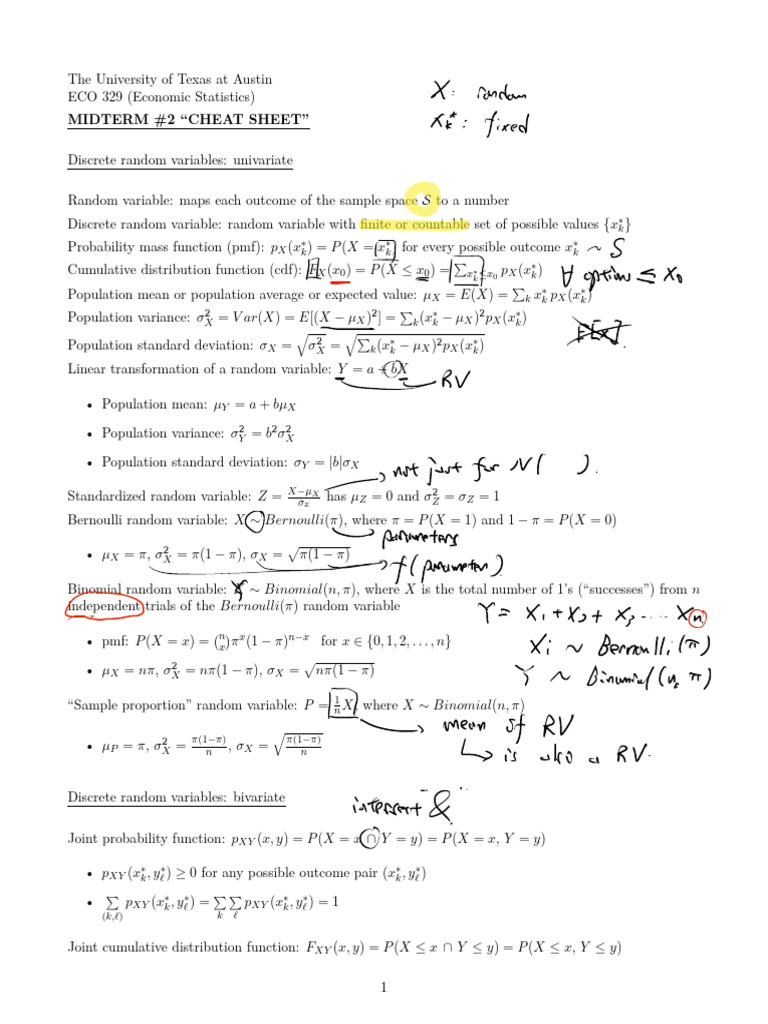 The University of Texas at Austin
X: random
ECO 329 (Economic Statistics)
MIDTERM #2 “CHEAT SHEET”
Xₖ*: fixed
Discrete random variables: univariate
Random variable: maps each outcome of the sample space 𝒮 to a number
Discrete random variable: random variable with finite or countable set of possible values {xₖ*}
Probability mass function (pmf): p_X(xₖ*) = P(X = xₖ*) for every possible outcome xₖ* ~ S
Cumulative distribution function (cdf): F_X(x₀) = P(X ≤ x₀) = ∑_{xₖ*≤x₀} p_X(xₖ*) ∀ option ≤ x₀
Population mean or population average or expected value: μ_X = E(X) = ∑ₖ xₖ* p_X(xₖ*)
Population variance: σ²_X = Var(X) = E[(X − μ_X)²] = ∑ₖ(xₖ* − μ_X)² p_X(xₖ*)
Population standard deviation: σ_X = √σ²_X = √∑ₖ(xₖ* − μ_X)² p_X(xₖ*)
Linear transformation of a random variable: Y = a + bX
RV
• Population mean: μ_Y = a + bμ_X
• Population variance: σ²_Y = b²σ²_X
• Population standard deviation: σ_Y = |b|σ_X
not just for N( ).
Standardized random variable: Z = (X−μ_X)/σ_x has μ_Z = 0 and σ²_Z = σ_Z = 1
Bernoulli random variable: X ∼ Bernoulli(π), where π = P(X = 1) and 1 − π = P(X = 0)
parameters
• μ_X = π, σ²_X = π(1 − π), σ_X = √π(1 − π)
f(parameters)
Binomial random variable: X ∼ Binomial(n, π), where X is the total number of 1’s (“successes”) from n
independent trials of the Bernoulli(π) random variable
Y = X₁ + X₂ + X₃ .... Xₙ
• pmf: P(X = x) = (n x)πˣ(1 − π)ⁿ⁻ˣ for x ∈ {0, 1, 2, . . . , n}
Xᵢ ~ Bernoulli(π)
• μ_X = nπ, σ²_X = nπ(1 − π), σ_X = √nπ(1 − π)
Y ~ Binomial(n, π)
“Sample proportion” random variable: P = 1/n X, where X ∼ Binomial(n, π)
mean of RV
• μ_P = π, σ²_X = π(1−π)/n, σ_X = √π(1−π)/n
is also a RV.
Discrete random variables: bivariate
intersect &
Joint probability function: p_XY(x, y) = P(X = x ∩ Y = y) = P(X = x, Y = y)
• p_XY(xₖ*, y_ℓ*) ≥ 0 for any possible outcome pair (xₖ*, y_ℓ*)
• ∑_{(k,ℓ)} p_XY(xₖ*, y_ℓ*) = ∑ₖ ∑_ℓ p_XY(xₖ*, y_ℓ*) = 1
Joint cumulative distribution function: F_XY(x, y) = P(X ≤ x ∩ Y ≤ y) = P(X ≤ x, Y ≤ y)
1